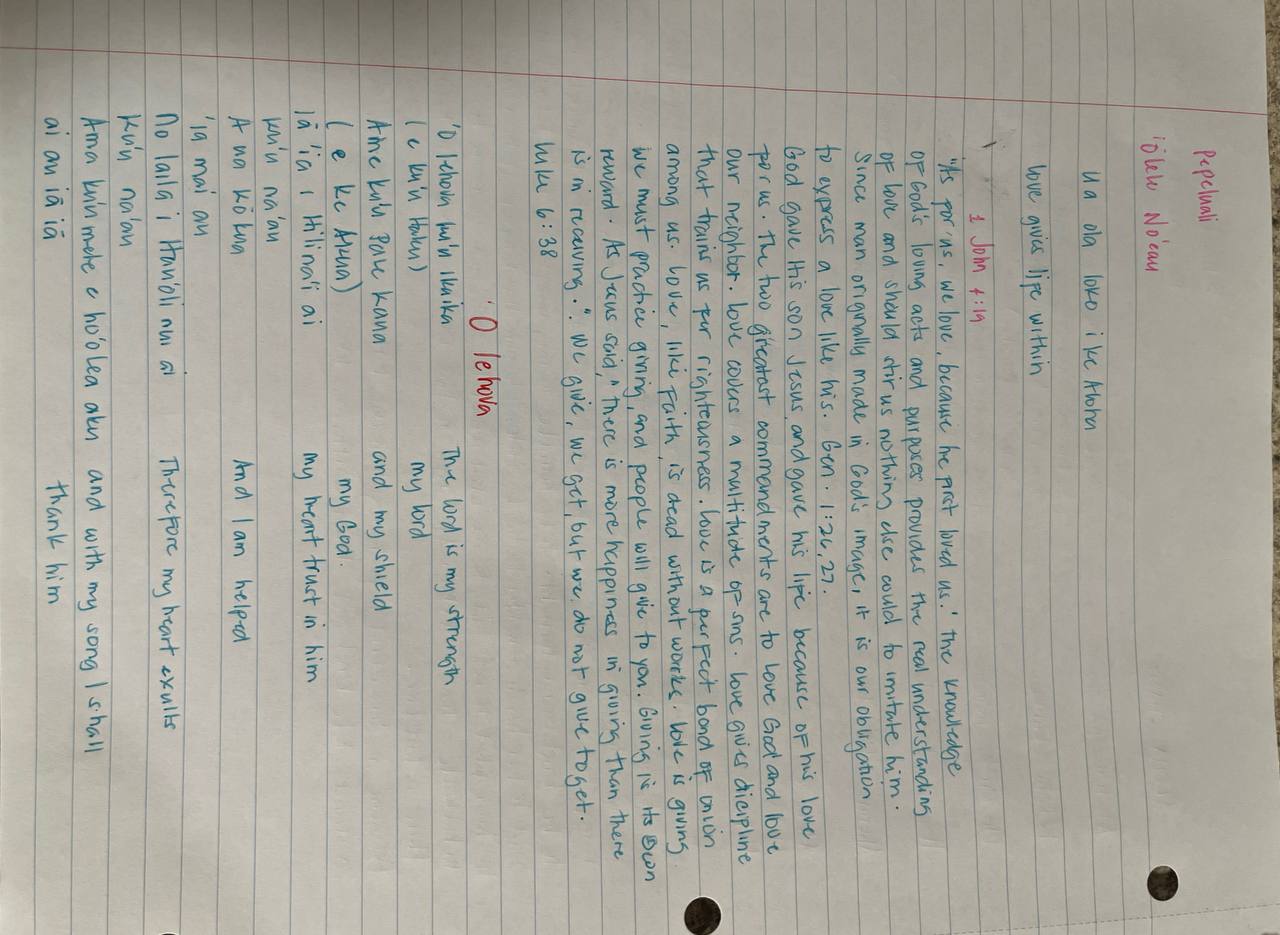 Pepeluali
'Ōlelo No'eau
Ua ola loko i ke Aloha
Love gives life within
1 John 4:19
"As for us, we love, because he first loved us." The knowledge
of God's loving acts and purposes provides the real understanding
of love and should stir us nothing else could to imitate him.
Since man originally made in God's image, it is our obligation
to express a love like his. Gen. 1:26,27.
God gave His son Jesus, and gave his life because of his love
for us. The two greatest commandments are to love God and love
our neighbor. Love covers a multitude of sins. Love gives dicipline
that trains us for righteousness. Love is a perfect bond of union
among us. Love, like faith, is dead without works. Love is giving.
We must practice giving, and people will give to you. Giving is its own
reward. As Jesus said, "there is more happiness in giving than there
is in receiving.". We give, we get, but we do not give to get.
Luke 6:38
'O Iehova
'O Iehova ku'u Ikaika The lord is my strength
(e ku'u Haku) my lord
Ame ku'u Pale kana and my shield
(e ke Akua) my God.
Iā ia i Hilina'i ai my heart trust in him
ku'u na'au
A ua kōkua And I am helped
'ia mai au
No laila i Hau'oli nui ai Therefore my heart exults
ku'u na'au
Ama ku'u mele e ho'olea aku and with my song I shall
ai au iā iā thank him